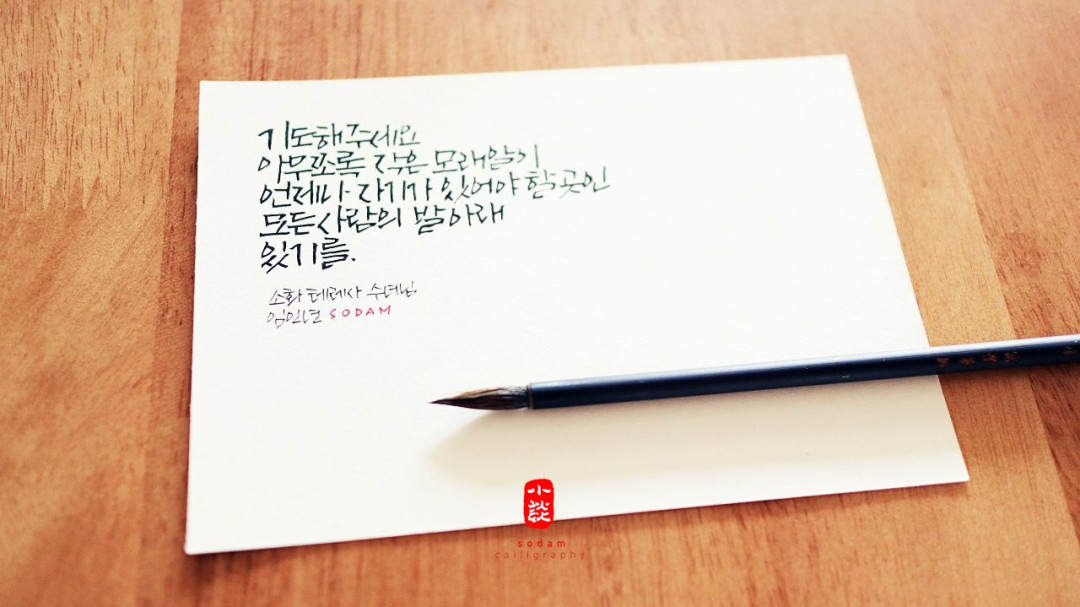 기도해주세요
아무쪼록 작은 모래알이
언제나 자기가 있어야 할 곳인
모든사람의 발 아래
있기를.
소화 테레사 수녀님
임인년 SODAM
小談
sodam
calligraphy